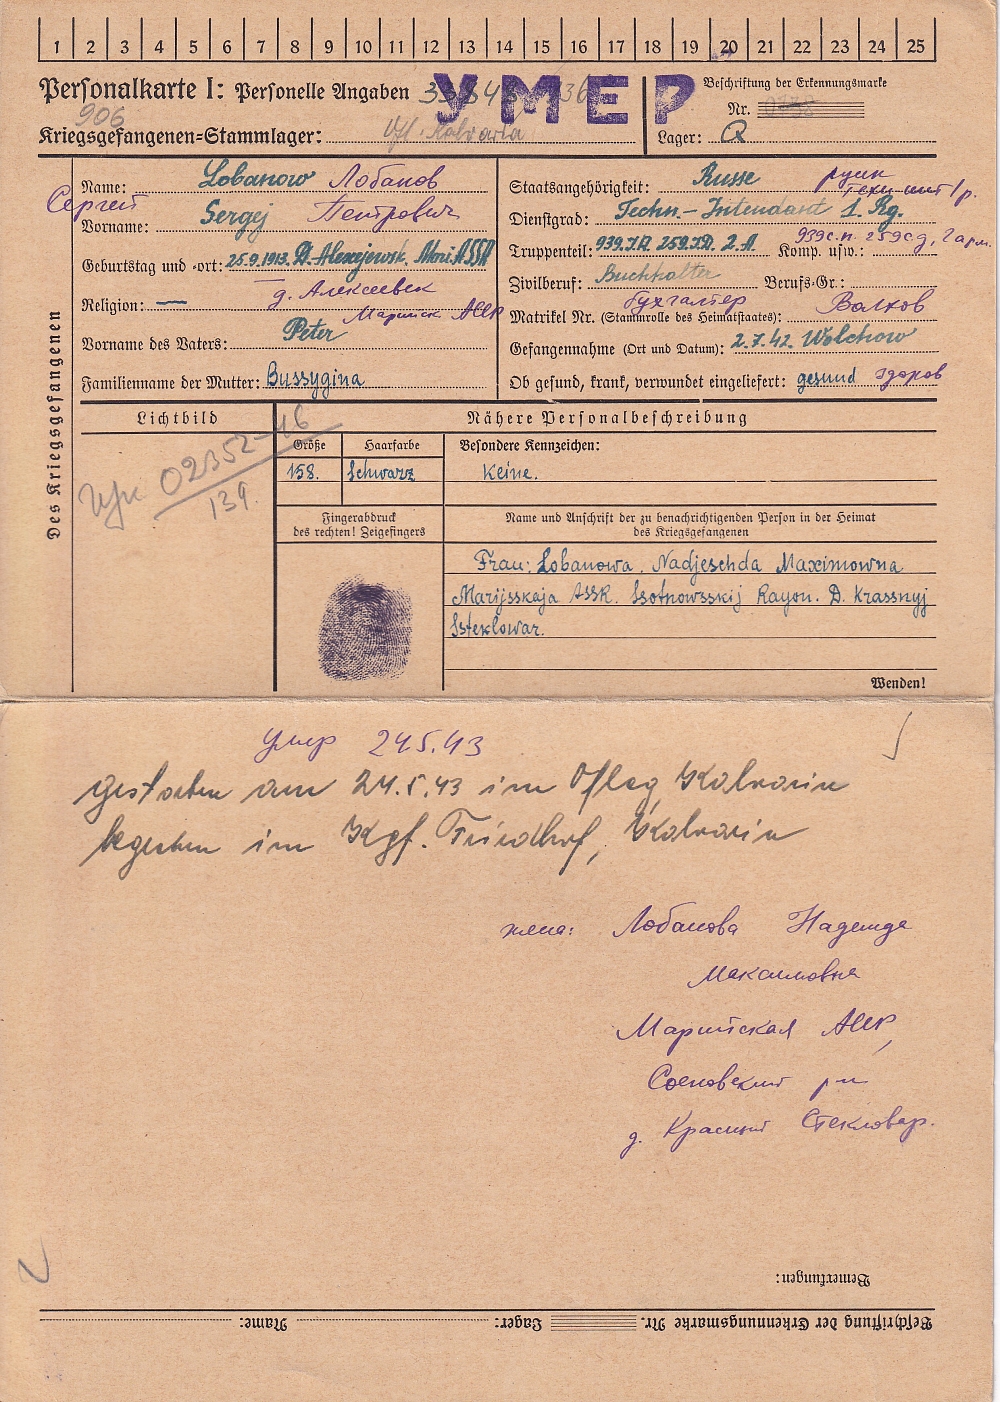 1 2 3 4 5 6 7 8 9 10 11 12 13 14 15 16 17 18 19 20 21 22 23 24 25
Personalkarte I: Personelle Angaben
УМЕР
Beschriftung der Erkennungsmarke
Nr.
906
Kriegsgefangenen-Stammlager: Ofl. Kalvaria
Lager: Q
Des Kriegsgefangenen
Name: Lobanow Лобанов
Сергей
Vorname: Sergej Петрович
Geburtstag und -ort: 25.9.1913. D. Alexejewsk. Mari ASSR
д. Алексеевск
Religion: —
Марийск АССР
Vorname des Vaters: Peter
Familienname der Mutter: Bussygina
Staatsangehörigkeit: Russe
техн инт 1 р.
Dienstgrad: Techn.-Intendant 1. Rg.
939 с.п. 259 сд, 2 арм.
Truppenteil: 939.I.R. 259.I.D. 2.A. Komp. usw.:
Zivilberuf: Buchhalter Berufs-Gr.:
бухгалтер Волхов
Matrikel Nr. (Stammrolle des Heimatstaates):
Gefangennahme (Ort und Datum): 2.7.42. Wolchow
Ob gesund, krank, verwundet eingeliefert: gesund здоров
Lichtbild
02352-46
139.
Nähere Personalbeschreibung
Größe Haarfarbe Besondere Kennzeichen:
158. Schwarz Keine.
Fingerabdruck
des rechten! Zeigefingers
Name und Anschrift der zu benachrichtigenden Person in der Heimat
des Kriegsgefangenen
Frau: Lobanowa. Nadjeschda Maximowna
Marijsskaja ASSR. Ssotnowsskij Rayon. D. Krassnyj
Ssteklowar.
Wenden!
Умер 24.5.43
gestorben am 24.5.43 im Oflag Kalvarin
begraben im Kgf. Friedhof, Kalvarin
жена: Лобанова Надежда
Максимовна
Марийская АССР,
Сосновский р-н
д. Красный Стекловар.
Bemerkungen:
Beschriftung der Erkennungsmarke Nr. Lager: Name: